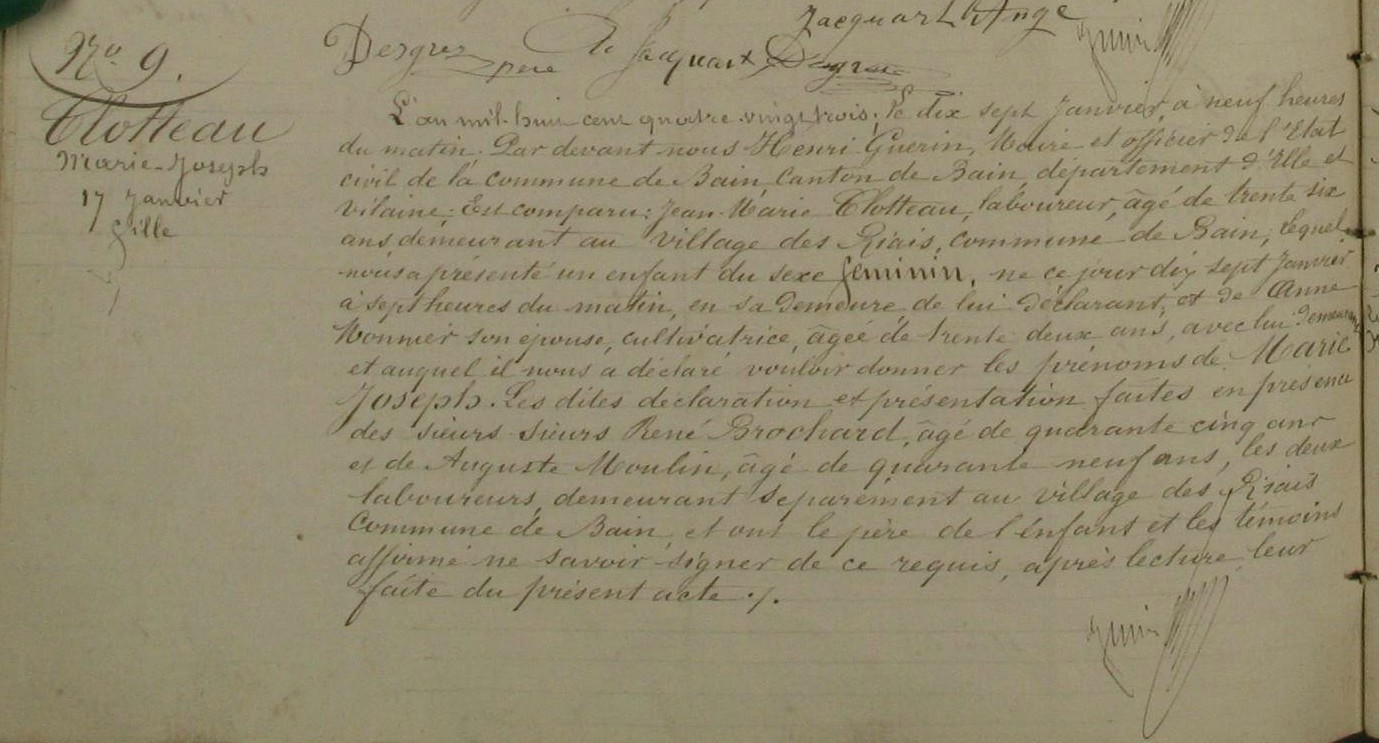 Jacquart Ange
Desgres père A Jacquart Desgres
Guérin
No 9.
Clotteau
Marie-Joseph
17 Janvier
fille
L'an mil-huit cent quatre-vingt trois, le dix sept Janvier, à neuf heures
du matin. Par devant nous Henri Guérin, Maire et officier de l'Etat
civil de la commune de Bain, Canton de Bain, département d'Ille et
Vilaine; Est comparu: Jean-Marie Clotteau, laboureur, âgé de trente six
ans demeurant au village des Riais, commune de Bain, lequel
nous a présenté un enfant du sexe feminin, ne ce jour dix sept Janvier
à sept heures du matin, en sa demeure, de lui déclarant, et de Anne
Monnier son épouse, cultivatrice, âgée de trente deux ans, avec lui demeurant
et auquel il nous a déclaré vouloir donner les prénoms de Marie
Joseph. Les dites declaration et présentation faites en présence
des sieurs sieurs René Brochard, âgé de quarante cinq ans
et de Auguste Moulin, âgé de quarante neuf ans, les deux
laboureurs, demeurant separément au village des Riais
Commune de Bain, et ont le père de l'enfant et les témoins
affirmé ne savoir signer de ce requis, après lecture leur
faite du présent acte ./.
Guérin